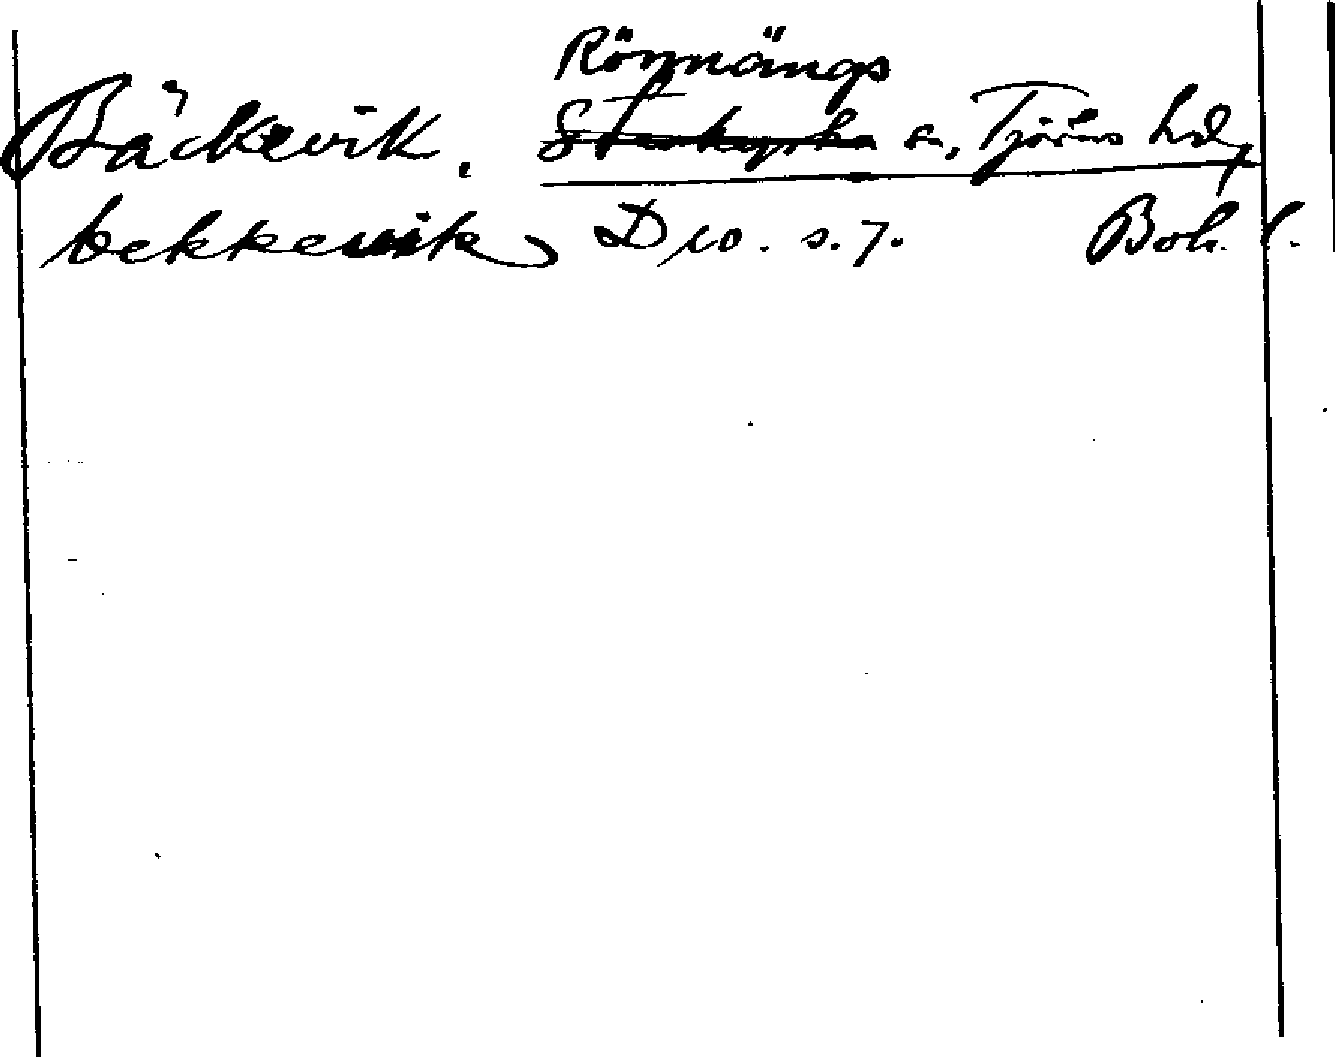 Rönnängs
Bäckevik. Stenkyrka sn, Tjörns hd,
bekkevik D 10. s. 7. Boh. l.